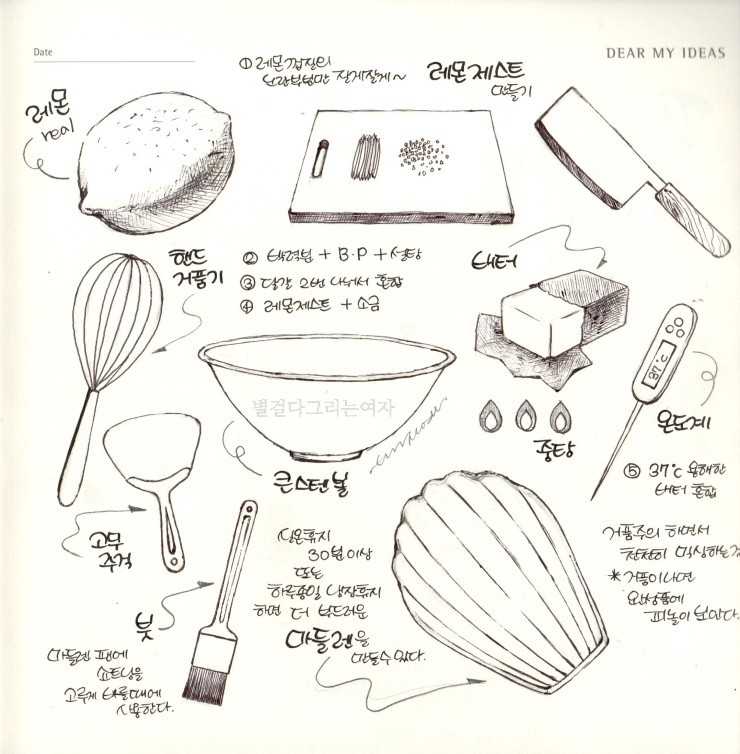 Date
DEAR MY IDEAS
① 레몬껍질의
노란부분만 잘게잘게~
레몬제스트
만들기
레몬
real
핸드
거품기
② 박력분 + B.P + 설탕
③ 달걀 2번 나눠서 혼합
④ 레몬제스트 + 소금
버터
별걸다그리는여자
37℃
온도계
중탕
⑤ 37℃ 용해한
버터 혼합
큰스텐볼
고무
주걱
실온휴지
30분이상
또는
하루종일 냉장휴지
하면 더 부드러운
마들렌을
만들수있다.
거품주의 하면서
천천히 믹싱하는것
*거품이나면
완성품에
붓
마들렌 팬에
쇼트닝을
고루게 바를때에
사용한다.